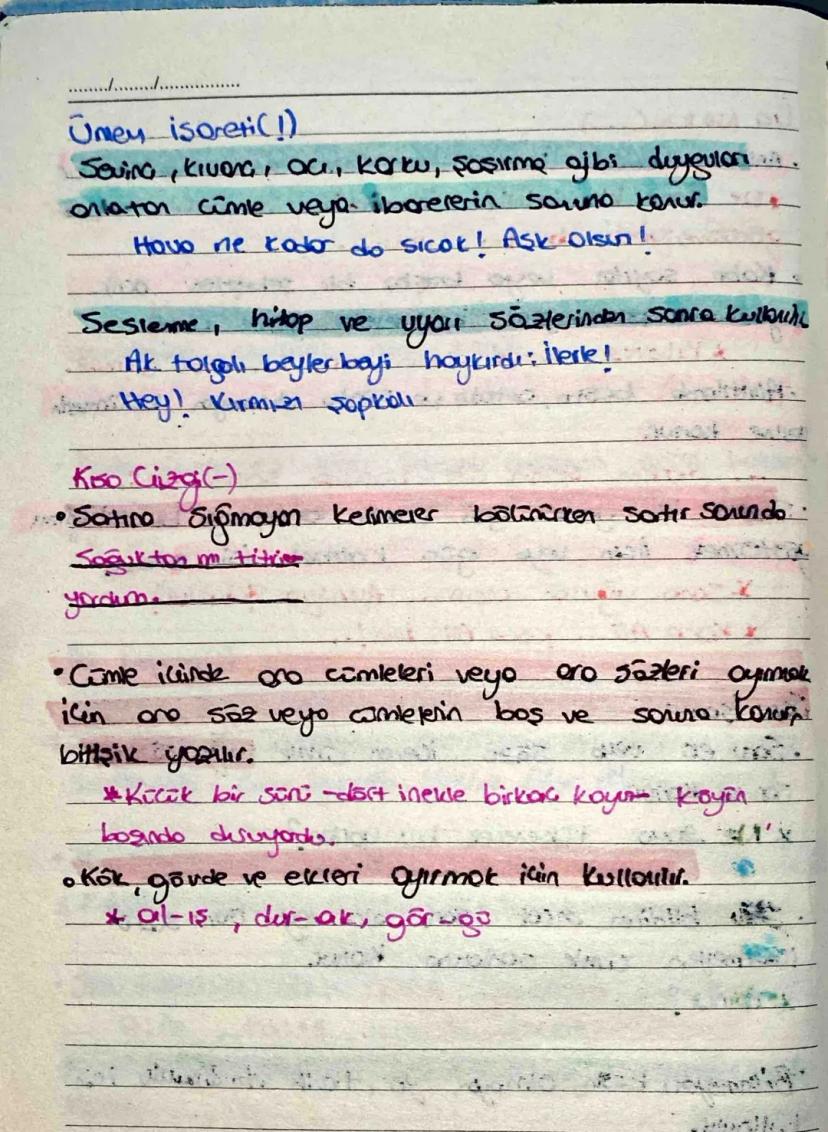 ......../......../................
Ünlem işareti(!)
Sevinç, kıvanç, acı, korku, şaşırma gibi duyguları
anlatan cümle veya ibarelerin sonuna konur.
Hava ne kadar da sıcak! Aşk Olsun!
Seslenme, hitap ve uyarı sözlerinden sonra kullanılır
Ak tolgalı beylerbeyi haykırdı: İlerle!
Hey! Kırmızı şapkalı
Kısa Çizgi(-)
• Satıra sığmayan kelimeler bölünürken satır sonunda.
Soğuktan mı titri-
yordum.
• Cümle içinde ara cümleleri veya ara sözleri ayırmak
için ara söz veya cümlelerin baş ve sonuna konur,
bitişik yazılır.
*Küçük bir sürü -dört inekle birkaç koyun- köyün
başında duruyordu.
• Kök, gövde ve ekleri ayırmak için kullanılır.
* al-ış, dur-ak, gör-gü